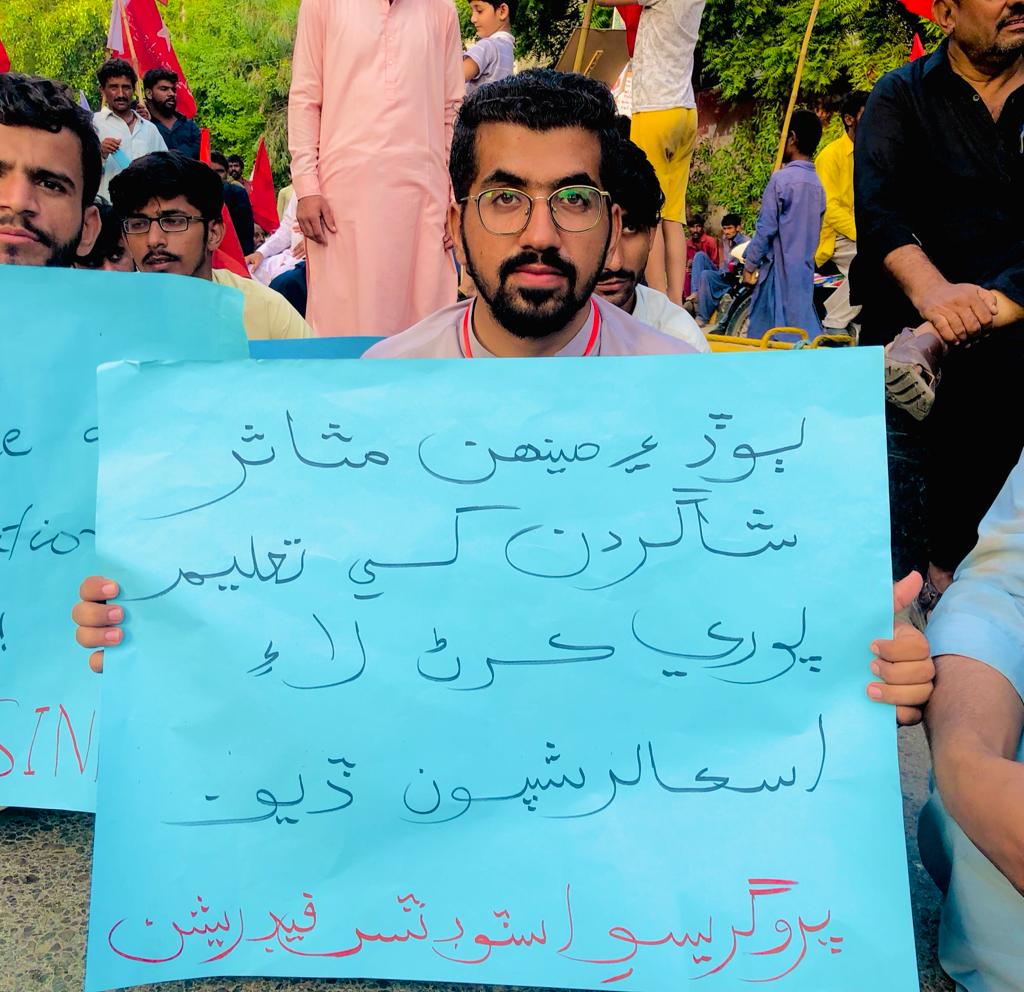 ٻوڏ ۽ مينهن متاثر
شاگردن کي تعليم
پوري ڪرڻ لاءِ
اسڪالرشپون ڏيو۔
پروگريسو اسٽوڊنٽس فيڊريشن
SIN